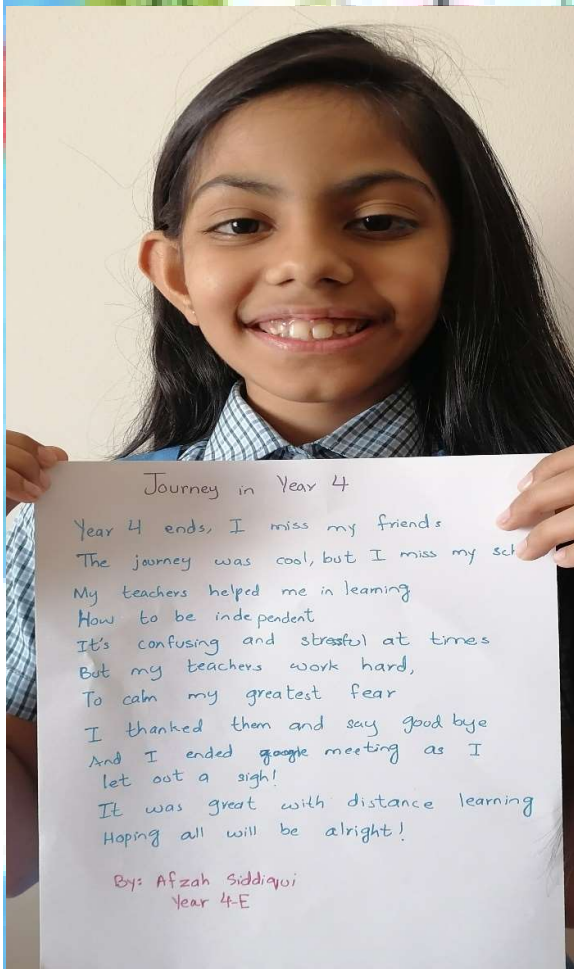 Journey in Year 4
Year 4 ends, I miss my friends
The journey was cool, but I miss my sch
My teachers helped me in learning
How to be independent
It's confusing and stressful at times
But my teachers work hard,
To calm my greatest fear
I thanked them and say good bye
And I ended google meeting as I
let out a sigh!
It was great with distance learning
Hoping all will be alright!
By: Afzah Siddiqui
Year 4-E